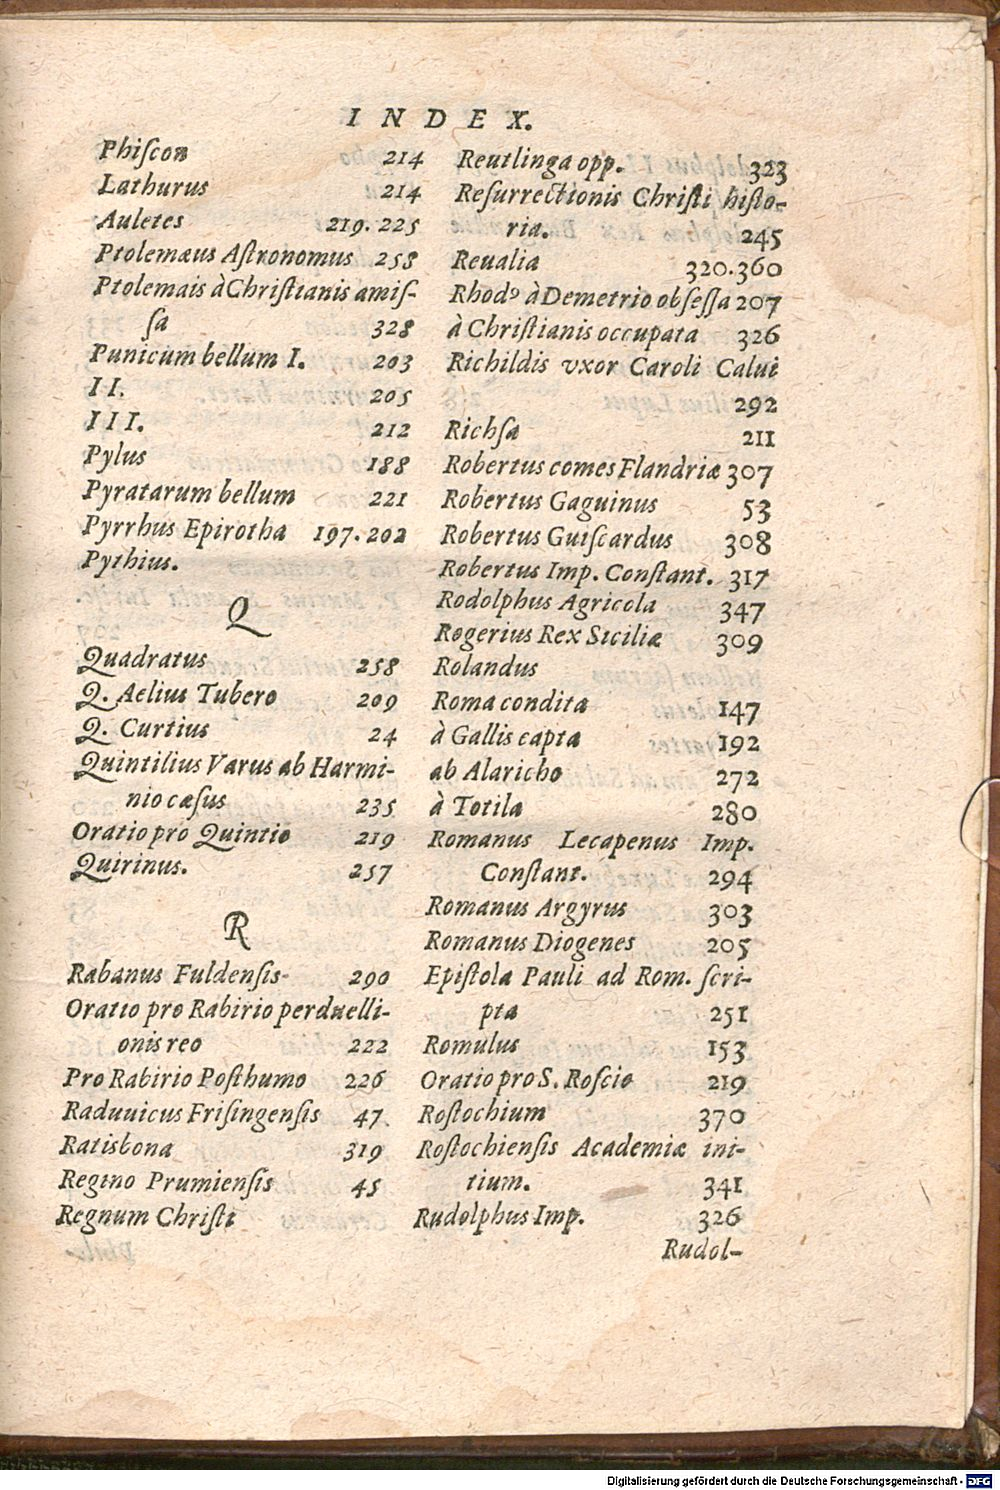 INDEX.
Phiſcon 214
Lathurus 214
Auletes 219. 225
Ptolemæus Aſtronomus 258
Ptolemais à Chriſtianis amiſ-
ſa 328
Punicum bellum I. 203
II. 205
III. 212
Pylus 188
Pyratarum bellum 221
Pyrrhus Epirotha 197. 202
Pythius.
Q
Quadratus 258
Q. Aelius Tubero 209
Q. Curtius 24
Quintilius Varus ab Harmi-
nio cæſus 235
Oratio pro Quintio 219
Quirinus. 257
R
Rabanus Fuldenſis 290
Oratio pro Rabirio perduelli-
onis reo 222
Pro Rabirio Poſthumo 226
Raduuicus Friſingenſis 47
Ratisbona 319
Regino Prumienſis 45
Regnum Chriſti
Reutlinga opp. 323
Reſurrectionis Chriſti hiſto-
ria. 245
Reualia 320.360
Rhodꝰ à Demetrio obſeſſa 207
à Chriſtianis occupata 326
Richildis vxor Caroli Calui
292
Richſa 211
Robertus comes Flandriæ 307
Robertus Gaguinus 53
Robertus Guiſcardus 308
Robertus Imp. Conſtant. 317
Rodolphus Agricola 347
Rogerius Rex Siciliæ 309
Rolandus
Roma condita 147
à Gallis capta 192
ab Alaricho 272
à Totila 280
Romanus Lecapenus Imp.
Conſtant. 294
Romanus Argyrus 303
Romanus Diogenes 205
Epiſtola Pauli ad Rom. ſcri-
pta 251
Romulus 153
Oratio pro S. Roſcio 219
Roſtochium 370
Roſtochienſis Academiæ ini-
tium. 341
Rudolphus Imp. 326
Rudol-
Digitalisierung gefördert durch die Deutsche Forschungsgemeinschaft - DFG